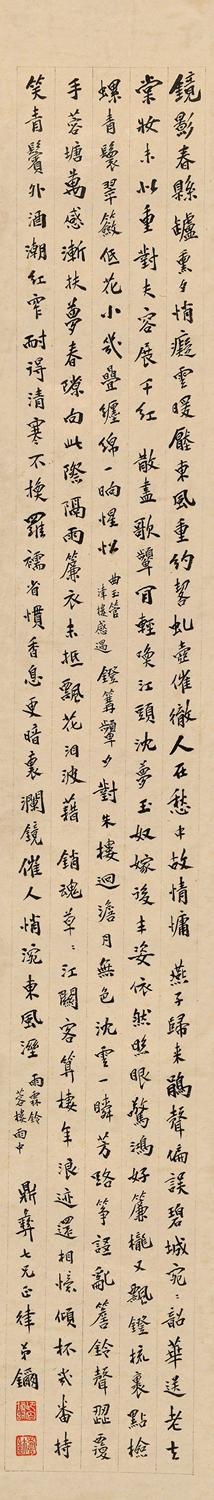 鏡影春縣罏熏夕悄癡雲暖壓東風重約略虬壺催徹人在愁中故情慵　燕子歸來鵑聲偏誤碧城宛〻韶華送老去
棠妝未似重對夫容展千紅　散盡歌顰間輕瓊江頭沈夢玉奴嫁後丰姿依然照眼驚鴻好簾櫳又飄鐙梳裏點檢
螺青鬟翠斂低花小幾疊纏綿一晌惺忪　曲玉管津樓感遇　鐙篝顰夕對朱樓迴澹月無色沈雲一瞬芳路箏語亂簷鈴聲澀覆
手蓉塘萬感漸扶夢春殘向此際隔雨簾衣未抵飄花泪波藉　銷魂草〻江關客算棲年浪迹還相憶傾杯或番持
笑青鬢外酒潮紅窄耐得清寒不換羅襦省慣香息更暗裏瀾鏡催人悄涴東風溼　雨霖鈴蓉樓雨中　鼎彝七元正律弟鏑